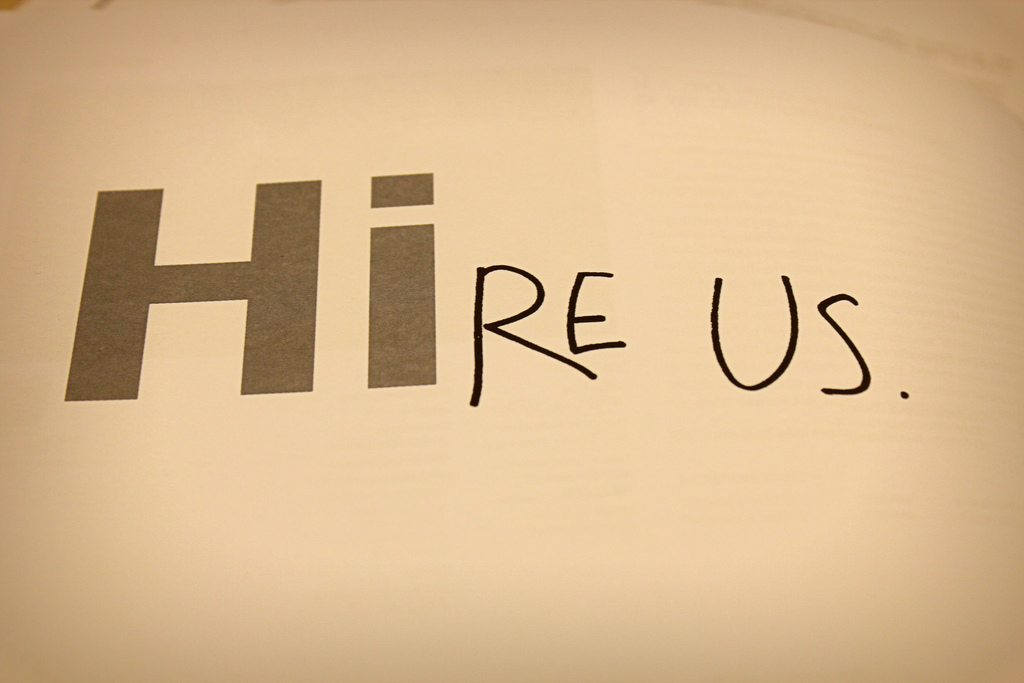 HiRE US.